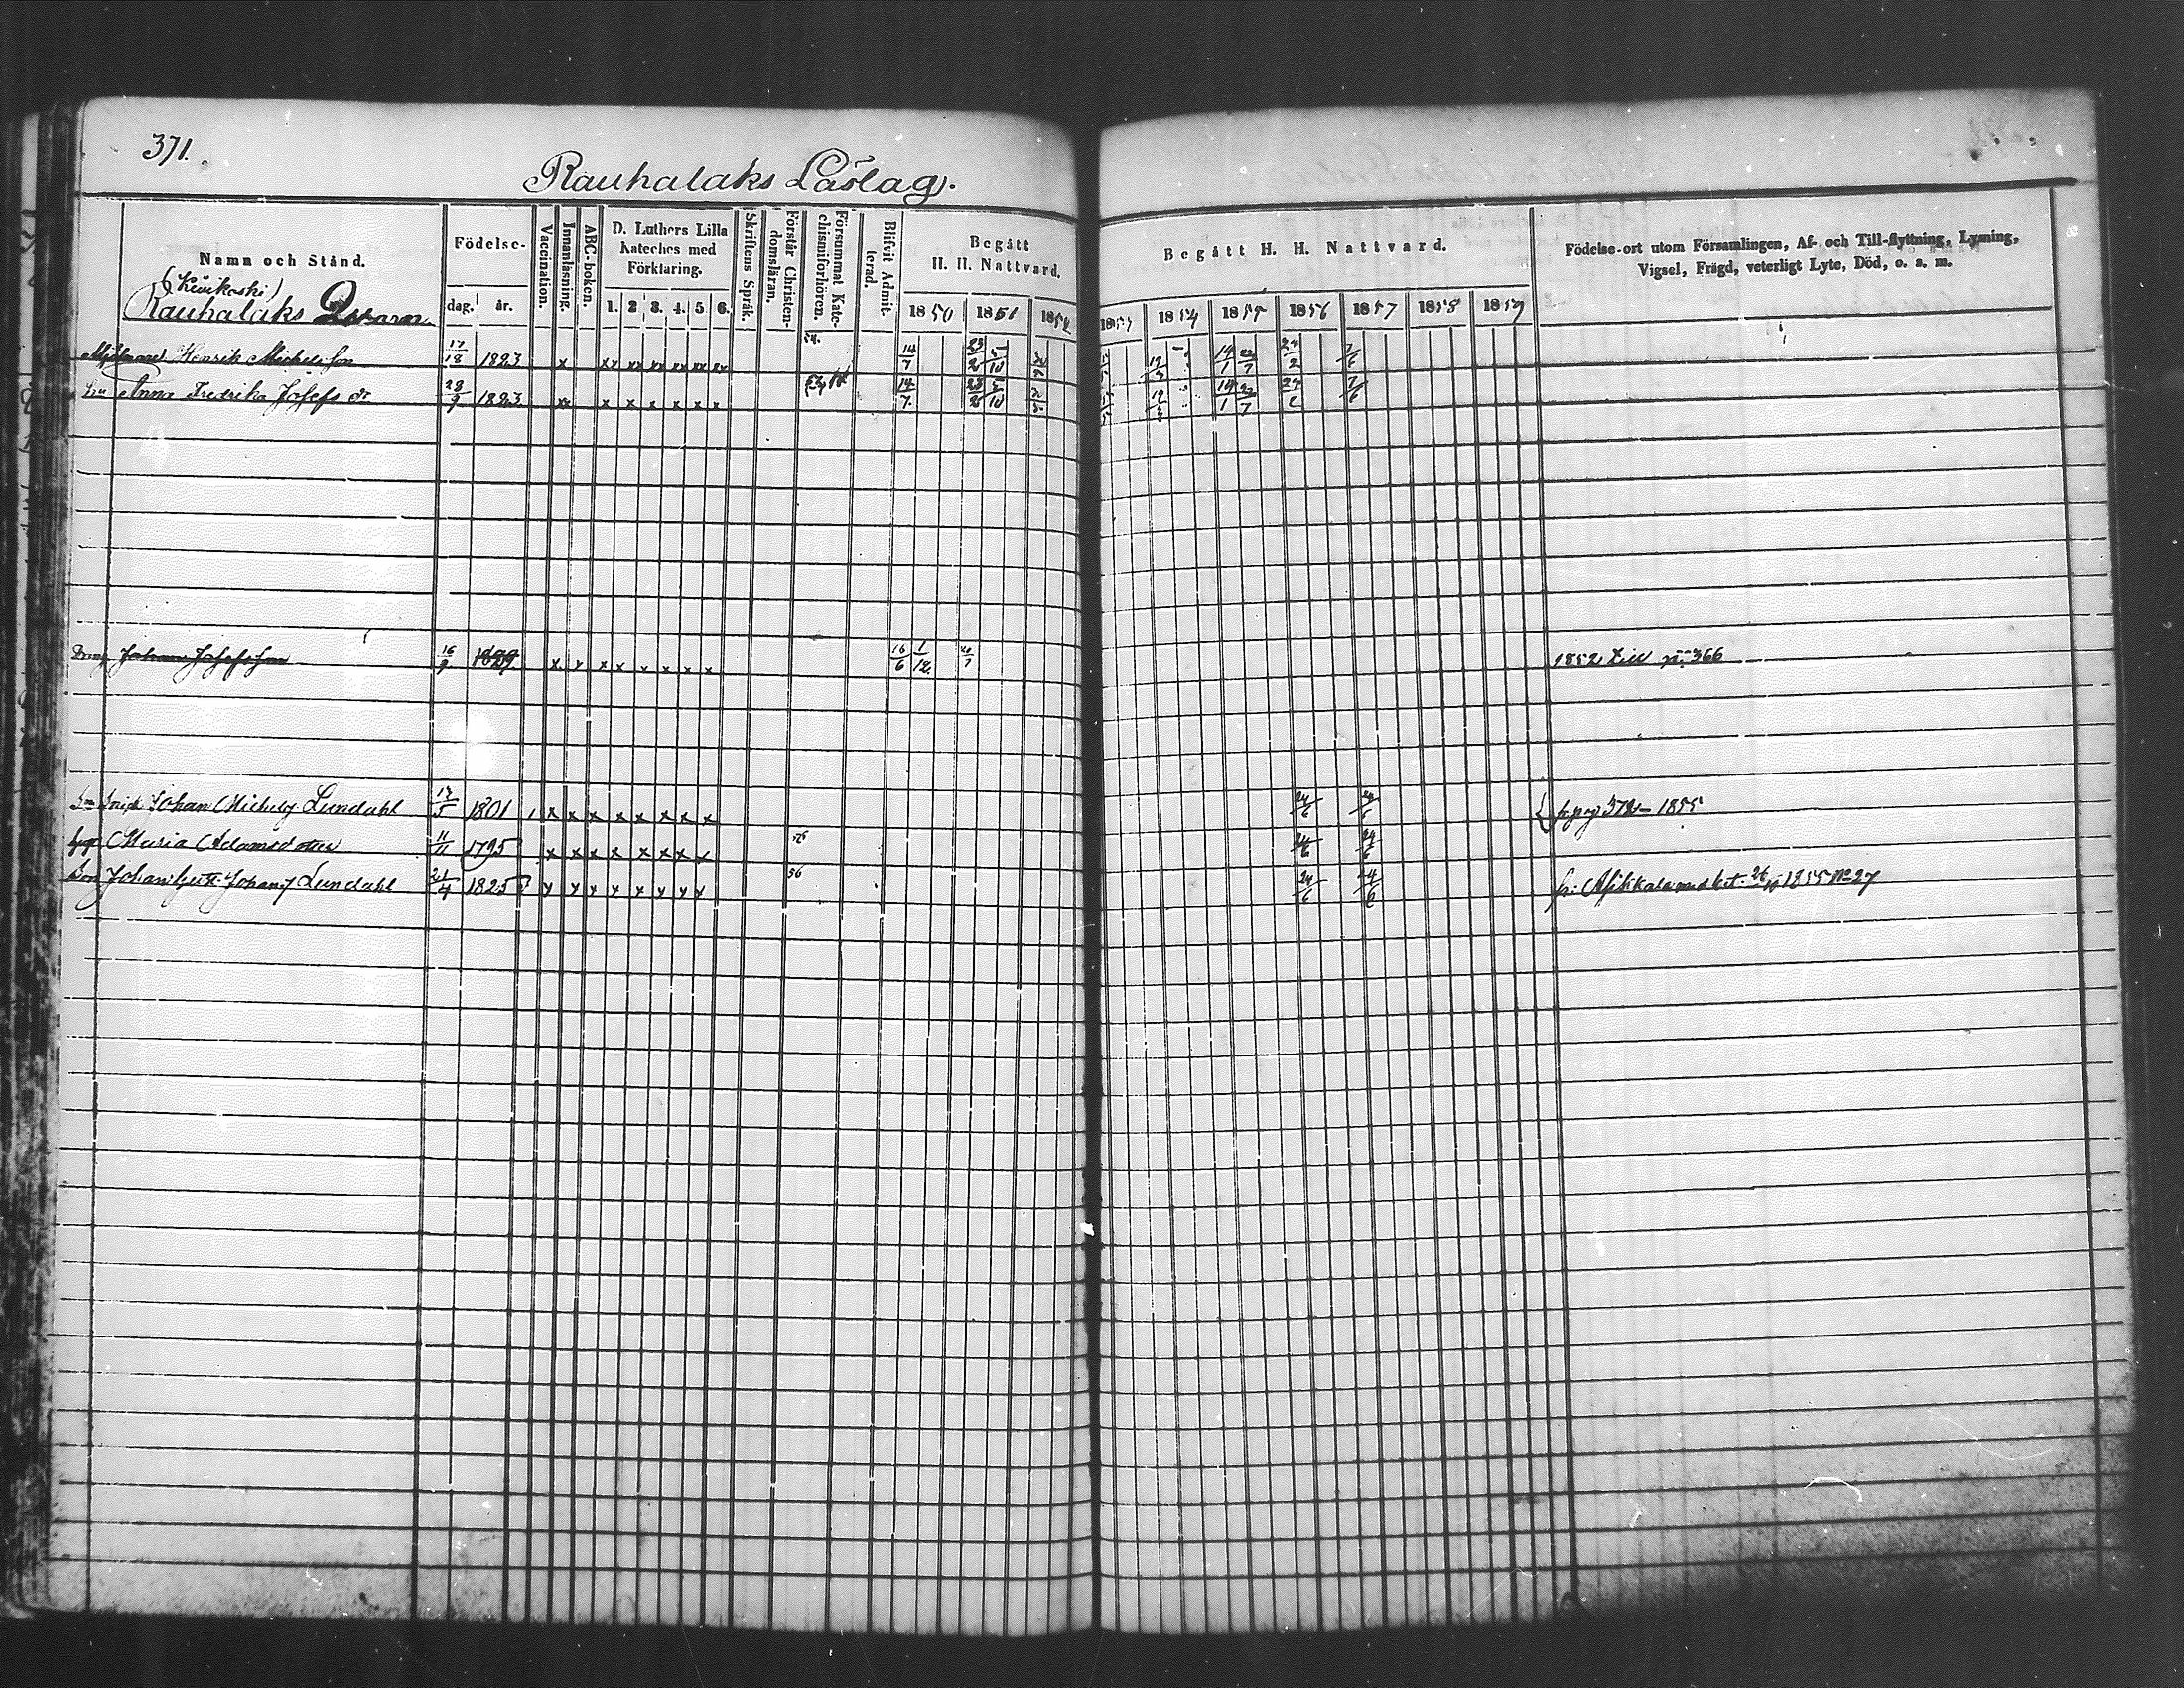 371.
Rauhalaks Läslag.
Namn och Stånd.
Födelse-
dag. år.
Vaccination.
Innanläsning.
ABC-boken.
D. Luthers Lilla Kateches med Förklaring.
1. 2 3. 4. 5 6.
Skriftens Språk.
Förstår Christendomsläran.
Försummat Katechismiförhören.
Blifvit Admitterad.
Begått H. H. Nattvard.
1850 1851 1852
Begått H. H. Nattvard.
1853 1854 1855 1856 1857 1858 1859
Födelse-ort utom Församlingen, Af- och Till-flyttning, Lysning, Vigsel, Frägd, veterligt Lyte, Död, o. s. m.
Rauhalaks Qvarn
Mjölnaren Henrik Michelsson 17/18 1823 x xx xx xx xx xx xx 14/7 23/2 5/10 19/1 22/7 24/2 7/6
Anna Fredrika Josefs dr 28/9 1823 xx x x x x x x 14/7 23/2 5/10 19/1 22/7 24/2 7/6
Dräng Johan Josefsson 16/9 1829 x x x x x x x x 16/6 1/12 1852 till p: 366
Johan Michelsj Lundahl 17/5 1801 x x x x x x x x 24/6 24/6 fr. pag 372 – 1855
Maria Adamsdotter 11/11 1795 x x x x x x x x 24/6 24/6
Son Johan Gust. Johansj Lundahl 21/4 1825 x x x x x x x x 24/6 fr: Asikkala med bet. 1855 No 27